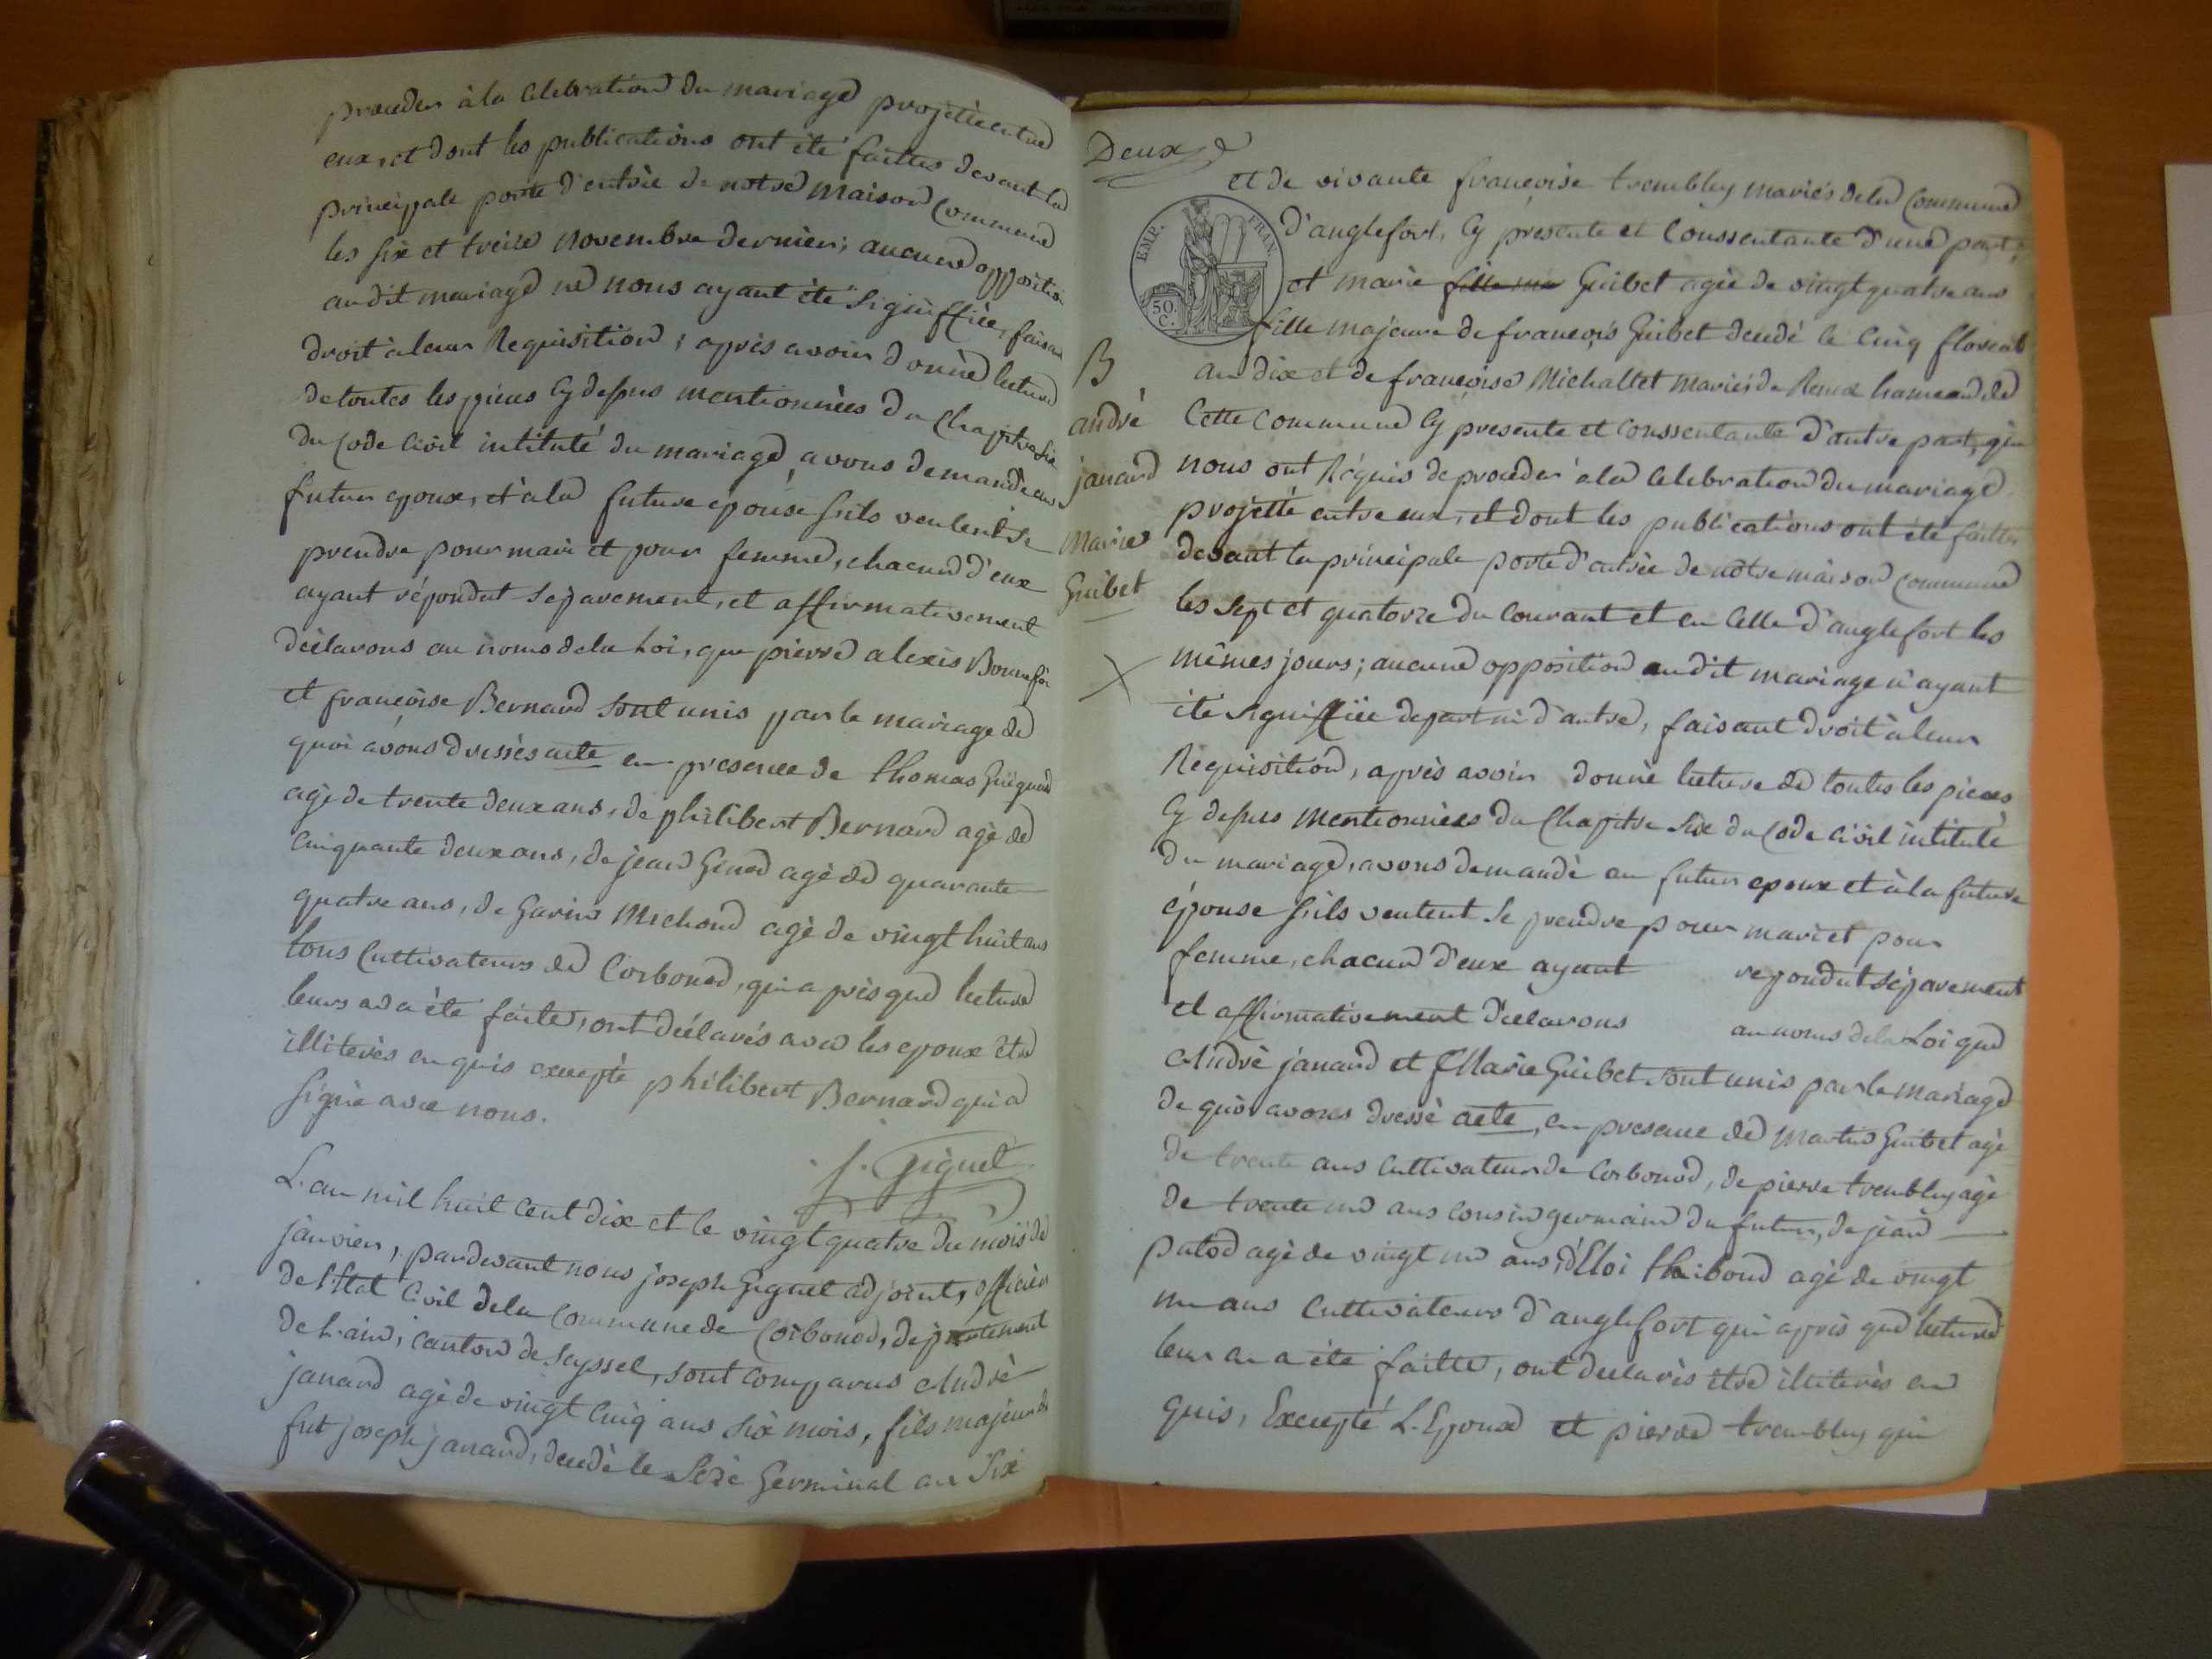 proceder à la Celebration du mariage projetté entre
eux, et dont les publications ont été faittes devant la
principale porte d'entrée de notre maison Commune
les six et treize novembre dernier; aucune opposition
au dit mariage ne nous ayant été signiffiée, faisant
droit à leur Requisition; après avoir donné lecture
de toutes les pieces Cy dessus mentionnées du Chapitre Six
du Code Civil intitulé du mariage, avons demandé au
futur epoux, et à la future epouse s'ils veulent se
prendre pour mari et pour femme, chacun d'eux
ayant répondut séparement, et affirmativement
déclarons au noms de la Loi, que pierre alexis
et françoise Bernard sont unis par le mariage de
quoi avons dressés acte en presence de thomas
agé de trente deux ans, de philibert Bernard agé de
Cinquante deux ans, de jean agé de quarante
quatre ans, de Garin Michoud agé de vingt huit ans
tous Cultivateurs de Corbonod, qui après que lecture
leurs en a été faite, ont déclarés avec les epoux etre
illiterés en quis excepté philibert Bernard qui a
signé avec nous.
J. Giguet
L'an mil huit Cent dix et le vingt quatre du mois de
janvier, pardevant nous joseph Giguet adjoint, officier
de l'Etat Civil de la Commune de Corbonod, département
de l'ain, Canton de Seyssel, sont Comparus André
janard agé de vingt Cinq ans six mois, fils majeur de
fut joseph janard, decedé le Germinal an Six
Deux
et de vivante françoise trembley mariés de la Commune
EMP. FRAN.
50 C.
d'anglefort, Cy presente et Conssentante d'une part;
et marie fille Guibet agée de vingt quatre ans
fille majeure de françois Guibet decedé le Cinq floreal
B
an dix et de françoise Michallet mariés de hameau de
andré
Cette Commune Cy presente et Conssentante d'autre part, qui
janard
nous ont Réquis de proceder à la Celebration du mariage
Marie
projetté entre eux, et dont les publications ont été faittes
Guibet
devant la principale porte d'entrée de notre maison Commune
les sept et quatorze du Courant et en Celle d'anglefort les
X
mêmes jours; aucune opposition au dit mariage n'ayant
été signiffiée de part ni d'autre, faisant droit à leur
Réquisition, après avoir donné lecture de toutes les pieces
Cy dessus mentionnées du Chapitre Six du Code Civil intitulé
du mariage, avons demandé au futur epoux et à la future
épouse s'ils veulent se prendre pour mari et pour
femme, chacun d'eux ayant repondut séparement
et affirmativement déclarons au noms de la Loi que
André janard et Marie Guibet sont unis par le mariage
de quoi avons dressé acte, en presence de Martin Guibet agé
de trente ans Cultivateur de Corbonod, de pierre trembley agé
de trente un ans Cousin germain du futur, de jean
putod agé de vingt un ans, d'Eloi agé de vingt
un ans Cultivateurs d'anglefort qui après que lecture
leur en a été faitte, ont declarés etre illiterés en
quis, Excepté L'Epoux et pierre trembley qui